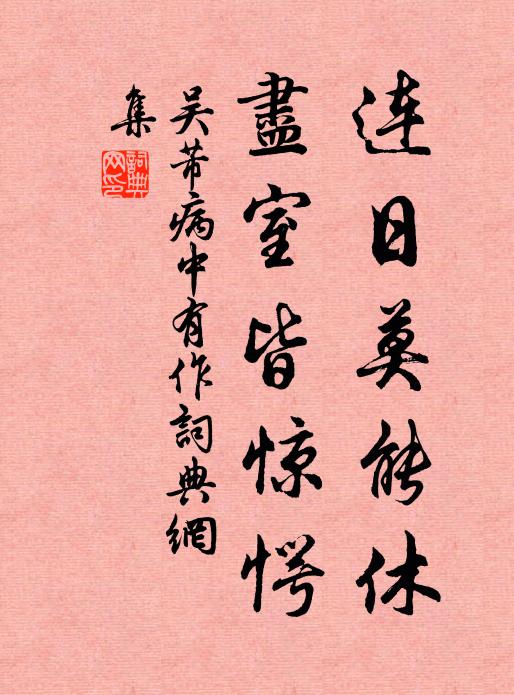 連日莫能休
盡室皆惊愕
吴芾病中有作詞典網
集
詞典
网印